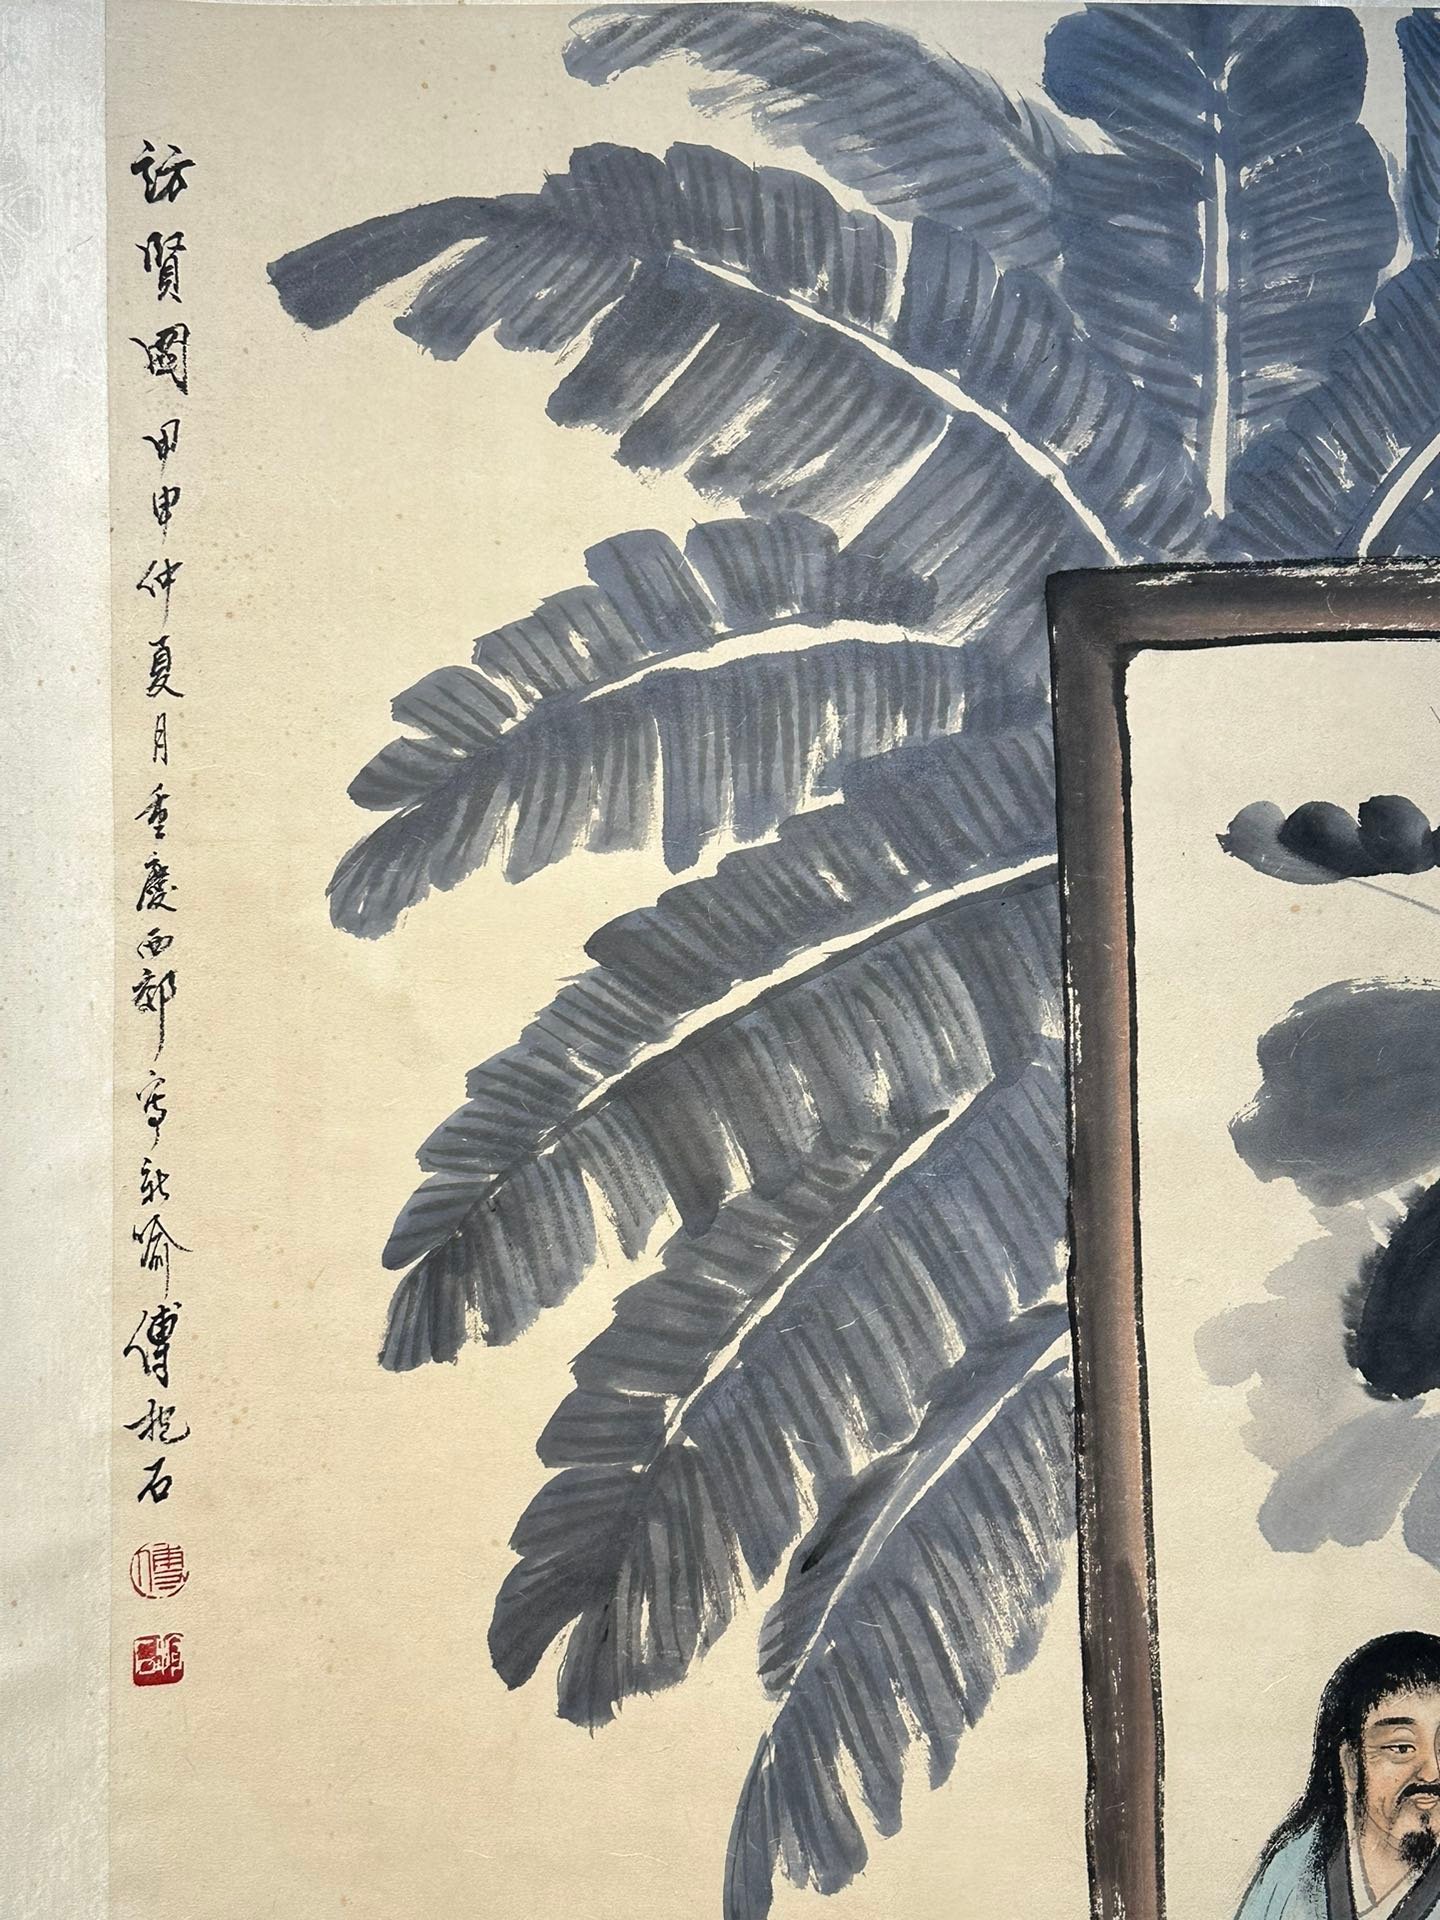 訪賢圖甲申仲夏月重慶西郊寫新喻傅抱石
傅